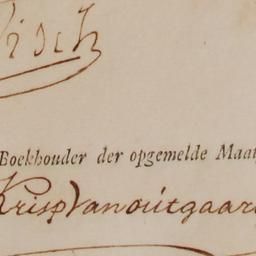 Visch
Boekhouder der opgemelde Maat
Krisp Van outgaar